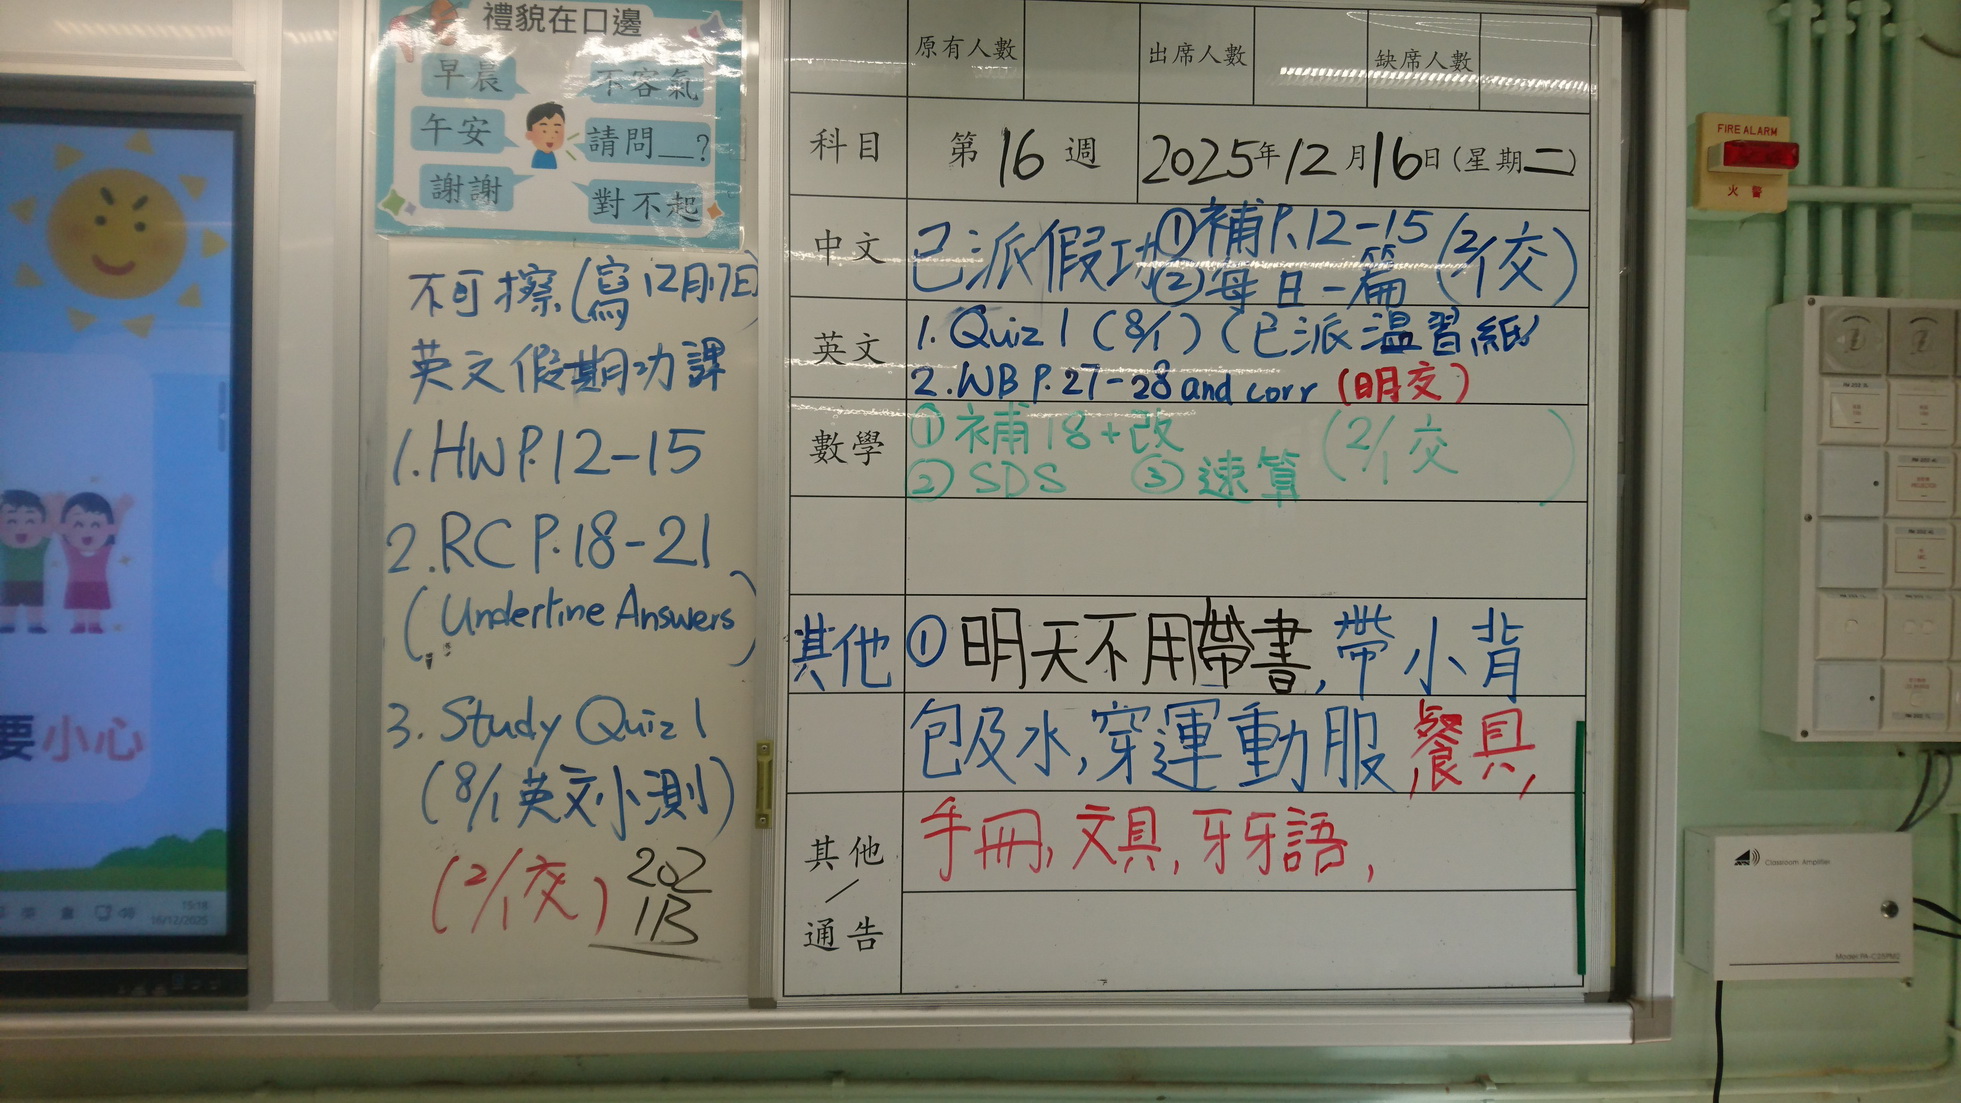 禮貌在口邊
早晨
不客氣
午安
請問__?
謝謝
對不起
不可擦(寫12月17日)
英文假期功課
1. HW P.12-15
2. RC P.18-21
(Underline Answers)
3. Study Quiz 1
(8/1英文小測)
(2/1交)
202
1B
要小心
15:18
16/12/2025
原有人數 出席人數 缺席人數
科目 第16週 2025年12月16日(星期二)
中文 已派假功 ①補P.12-15 (2/1交)
②每日一篇
英文 1. Quiz 1 (8/1) (已派溫習紙)
2. WB P.27-28 and corr (明交)
數學 ①補18+改 (2/1交)
②SDS ③速算
其他 ①明天不用帶書,帶小背
包及水,穿運動服,餐具,
其他/通告 手冊,文具,牙牙語,
FIRE ALARM
火警
Classroom Amplifier